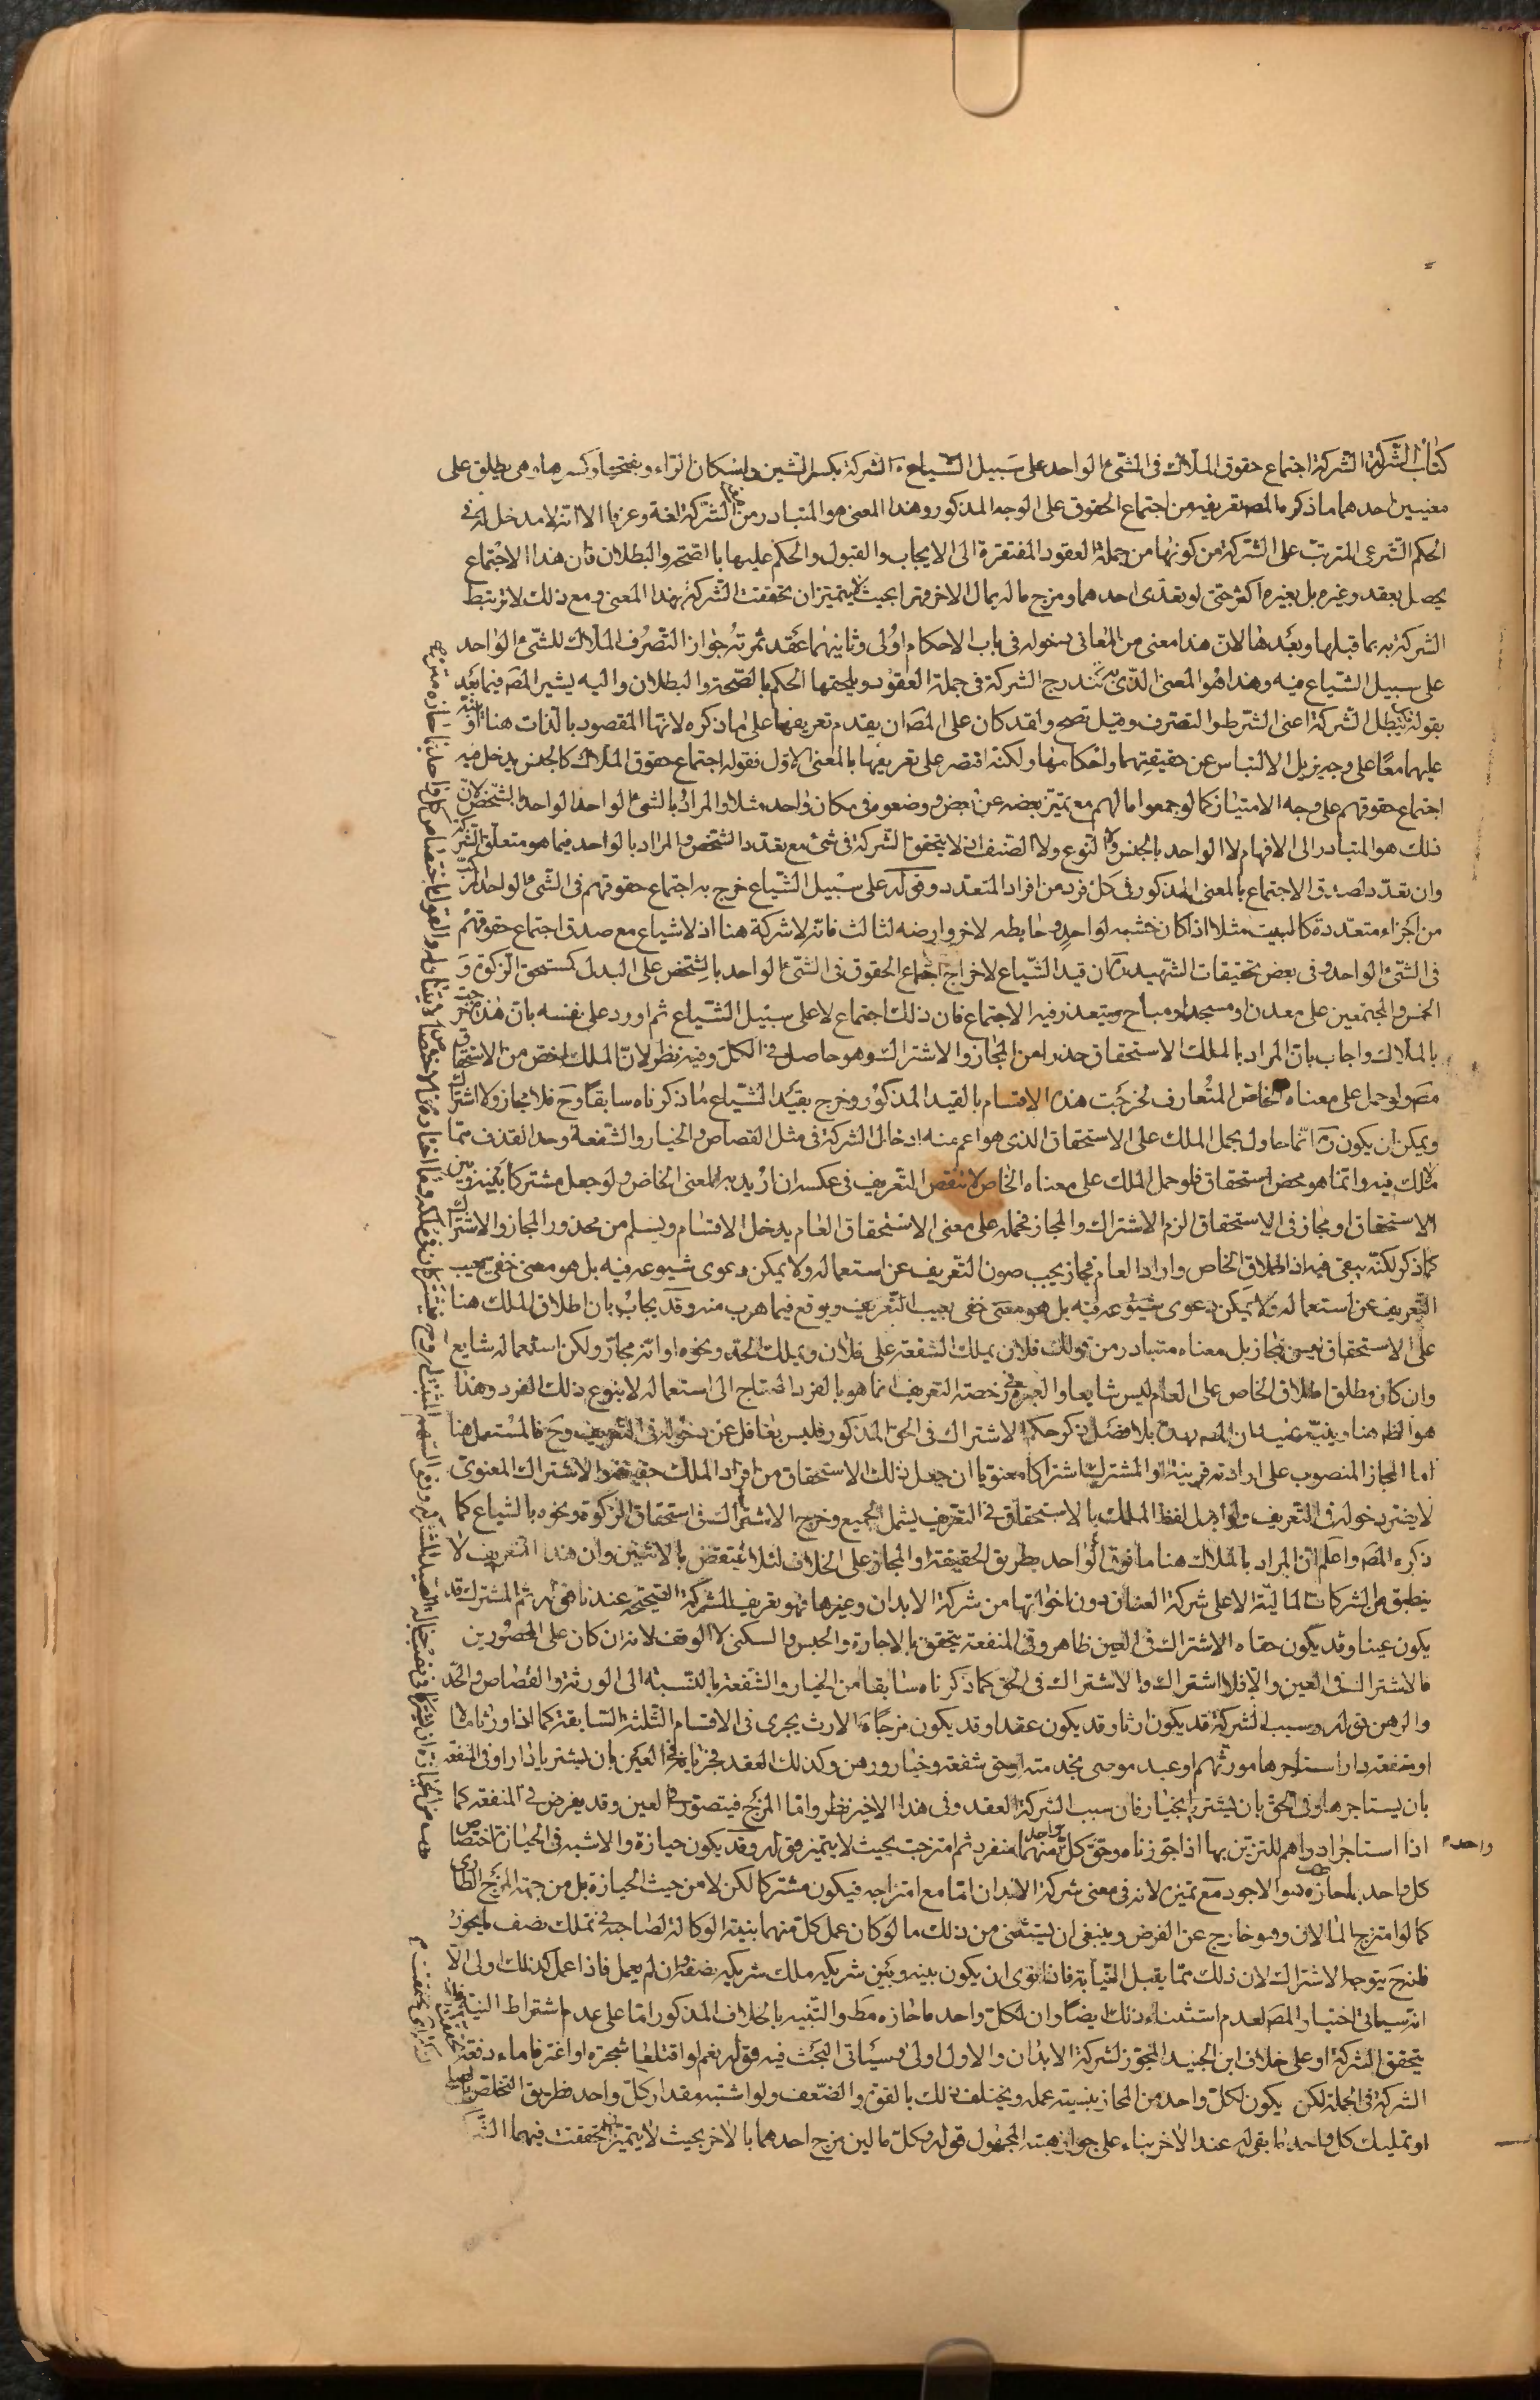 كتاب الشركة الشركة اجتماع حقوق الملاك فى الشىء الواحد على سبيل الشياع الشركة بكسر الشين واسكان الراء وبفتحها وكسرها وهى يطلق على
معنيين احدهما ما ذكره المصـ تعريفه من اجتماع الحقوق على الوجه المذكور وهذا المعنى هو المتبادر من الشركة لغة وعرفا الا انه لا مدخل له فى
الحكم الشرعى المترتب على الشركة من كونها من جملة العقود المفتقرة الى الايجاب والقبول والحكم عليها بالصحة والبطلان فان هذا الاجتماع
يحصل بعقد وغيره بل بغيره اكثر حتى لو تعدى احدهما ومزج ماله بمال الاخر قهرا بحيث لا يتميزان تحققت الشركة بهذا المعنى ومع ذلك لا ترتبط
الشركة به بما قبلها وبعدها لان هذا معنى من المعانى دخوله فى باب الاحكام اولى وثانيهما عقد ثمرته جواز التصرف الملاك للشىء الواحد
على سبيل الشياع فيه وهذا هو المعنى الذى به تندرج الشركة فى جملة العقود ويلحقها الحكم بالصحة والبطلان واليه يشير المصـ فيما بعد
بقوله تبطل الشركة اعنى الشرط والتصرف وقيل تصح ولقد كان على المصـ ان يقدم تعريفها على ما ذكره لانها المقصود بالذات هنا او ينبه
عليهما معا على وجه يزيل الالتباس عن حقيقتهما واحكامها ولكنه اقتصر على تعريفها بالمعنى الاول فقوله اجتماع حقوق الملاك كالجنس يدخل فيه
اجتماع حقوقهم على وجه الامتياز كما لو جمعوا مالهم مع تميز بعضه عن بعض ووضعوه فى مكان واحد مثلا والمراد بالشىء الواحد الواحد بالشخص لان
ذلك هو المتبادر الى الافهام لا الواحد بالجنس ولا النوع ولا الصنف اذ لا يتحقق الشركة فى شىء مع تعدد الشخص والمراد بالواحد فيما هو متعلق الشركة
وان تعدد لصدق الاجتماع بالمعنى المذكور فى كل فرد من افراد المتعدد وقوله على سبيل الشياع خرج به اجتماع حقوقهم فى الشىء الواحد المركب
من اجزاء متعددة كالبيت مثلا اذا كان خشبه لواحد وحايطه لاخر وارضه لثالث فانه لا شركة هنا اذ لا شياع مع صدق اجتماع حقوقهم
فى الشىء الواحد وفى بعض تحقيقات الشهيد ره ان قيد الشياع لاخراج اجتماع الحقوق فى الشىء الواحد بالشخص على البدل كمستحق الزكوة و
الخمس والمجتمعين على معدن او مسجد او مباح ويتعذر فيه الاجتماع فان ذلك اجتماع لا على سبيل الشياع ثم اورد على نفسه بان هذه خرجت
بالملاك واجاب بان المراد بالملك الاستحقاق حذرا من المجاز والاشتراك وهو حاصل فى الكل وفيه نظر لان الملك اخص من الاستحقاق
مصـ ولو حمل على معناه الخاص المتعارف لخرجت هذه الاقسام بالقيد المذكور وخرج بقيد الشياع ما ذكرناه سابقا وح فلا مجاز ولا اشتراك
ويمكن ان يكون ره انما حاول بحمل الملك على الاستحقاق الذى هو اعم منه ادخال الشركة فى مثل القصاص والخيار والشفعة وحد القذف مما
لا ملك فيه وانما هو محض استحقاق فلو حمل الملك على معناه الخاص لانتقض التعريف فى عكسه ان اريد به المعنى الخاص ولو جعل مشتركا بينه وبين
الاستحقاق او مجاز فى الاستحقاق لزم الاشتراك والمجاز فحمله على معنى الاستحقاق العام يدخل الاقسام ويسلم من محذور المجاز والاشتراك
كما ذكر لكنه يبقى فيه اذ اطلاق الخاص وارادة العام مجاز يجب صون التعريف عن استعماله ولا يمكن دعوى شيوعه فيه بل هو معنى خفى يعيب
التعريف عن استعماله ولا يمكن دعوى شيوعه فيه بل هو معنى خفى يعيب التعريف ويوقع فيما هرب منه وقد يجاب بان اطلاق الملك هنا
على الاستحقاق ليس مجاز بل معناه متبادر من قولك فلان يملك الشفعة على فلان ويملك الحد ونحوه او انه مجاز ولكن استعماله شايع
وان كان مطلق اطلاق الخاص على العام ليس شايعا والعبرة فى رخصة التعريف انما هو بالفرد المحتاج الى استعماله لا بنوع ذلك الفرد وهذا
هو الظـ هنا وينبه عليه ان المصـ بعده بلا فصل ذكر حكم الاشتراك فى الحق المذكور فليس بغافل عن دخوله فى التعريف وح فالمستعمل هنا
اما المجاز المنصوب على ارادته قرينة او المشترك اشتراكا معنويا ان جعل ذلك الاستحقاق من افراد الملك حقيقة والاشتراك المعنوى
لا يضر دخوله فى التعريف ولو ابدل لفظ الملك بالاستحقاق فى التعريف يشمل الجميع وخرج الاشتراك فى استحقاق الزكوة ونحوه بالشياع كما
ذكره المصـ واعلم ان المراد بالملاك هنا ما فوق الواحد بطريق الحقيقة او المجاز على الخلاف لئلا ينتقض بالاثنين وان هذا التعريف لا
ينطبق من الشركات المالية الا على شركة العنان دون اخواتها من شركة الابدان وغيرها فهو تعريف للشركة الصحيحة عندنا قوله ثم المشترك قد
يكون عينا وقد يكون حقا الاشتراك فى العين ظاهر وفى المنفعة يتحقق بالاجارة والحبس والسكنى لا الوقف لانه ان كان على المحصورين
فالاشتراك فى العين والا فلا اشتراك والاشتراك فى الحق كما ذكرناه سابقا من الخيار والشفعة بالنسبة الى الورثة والقصاص والحد
والرهن قوله وسبب الشركة قد يكون ارثا وقد يكون عقدا وقد يكون مزجا الارث يجرى فى الاقسام الثلثة السابقة كما اذا ورثا مالا
او منفعة دار استاجرها مورثهم او عبد موصى بخدمته او حق شفعة وخيار ورهن وكذلك العقد فجريانه فى العين بان يشتريا دارا وفى المنفعة
بان يستاجرها وفى الحق بان يشتريا بخيار فان سبب الشركة العقد وفى هذا الاخير نظر واما المزج فيتصور فى العين وقد يفرض فى المنفعة كما
اذا استاجرا دراهم للتزين بها اذا جوزناه وحق كل واحد منهما منفرد ثم امتزجت بحيث لا يتميز قوله وقد يكون حيازة والاشبه فى الحيازة اختصاص
واحد
كل واحد بما حازه هو الاجود مع تميزه لانه فى معنى شركة الابدان اما مع امتزاجه فيكون مشتركا لكن لا من حيث الحيازة بل من جهة المزج الطارى
كما لو امتزج المالان وهو خارج عن الفرض وينبغى ان يستثنى من ذلك ما لو كان عمل كل منهما بنية الوكالة لصاحبه فى تملك نصف ما يحوز
فانه ح يتوجه الاشتراك لان ذلك مما يقبل النيابة فاذا نوى ان يكون بينه وبين شريكه ملك شريكه نصفه وان لم يعمل فاذا عمل كذلك اولى الا
انه سياتى اختيار المصـ لعدم استثناء ذلك ايضا وان لكل واحد ما حازه مط والتنبيه بالخلاف المذكور اما على عدم اشتراط النية
يتحقق الشركة او على خلاف ابن الجنيد المجوز لشركة الابدان والاول اولى وسياتى البحث فيه قوله نعم لو اقتلعا شجرة او اغترفا ماء دفعة تحققت
الشركة فى الجملة لكن يكون لكل واحد من المحاز بنسبة عمله ويختلف ذلك بالقوة والضعف ولو اشتبه مقدار كل واحد فطريق التخلص بالصلح
او تمليك كل واحد ما بقى له عند الاخر بناء على جواز هبة المجهول قوله وكل مالين مزج احدهما بالاخر بحيث لا يتميزان تحققت فيهما الشركة